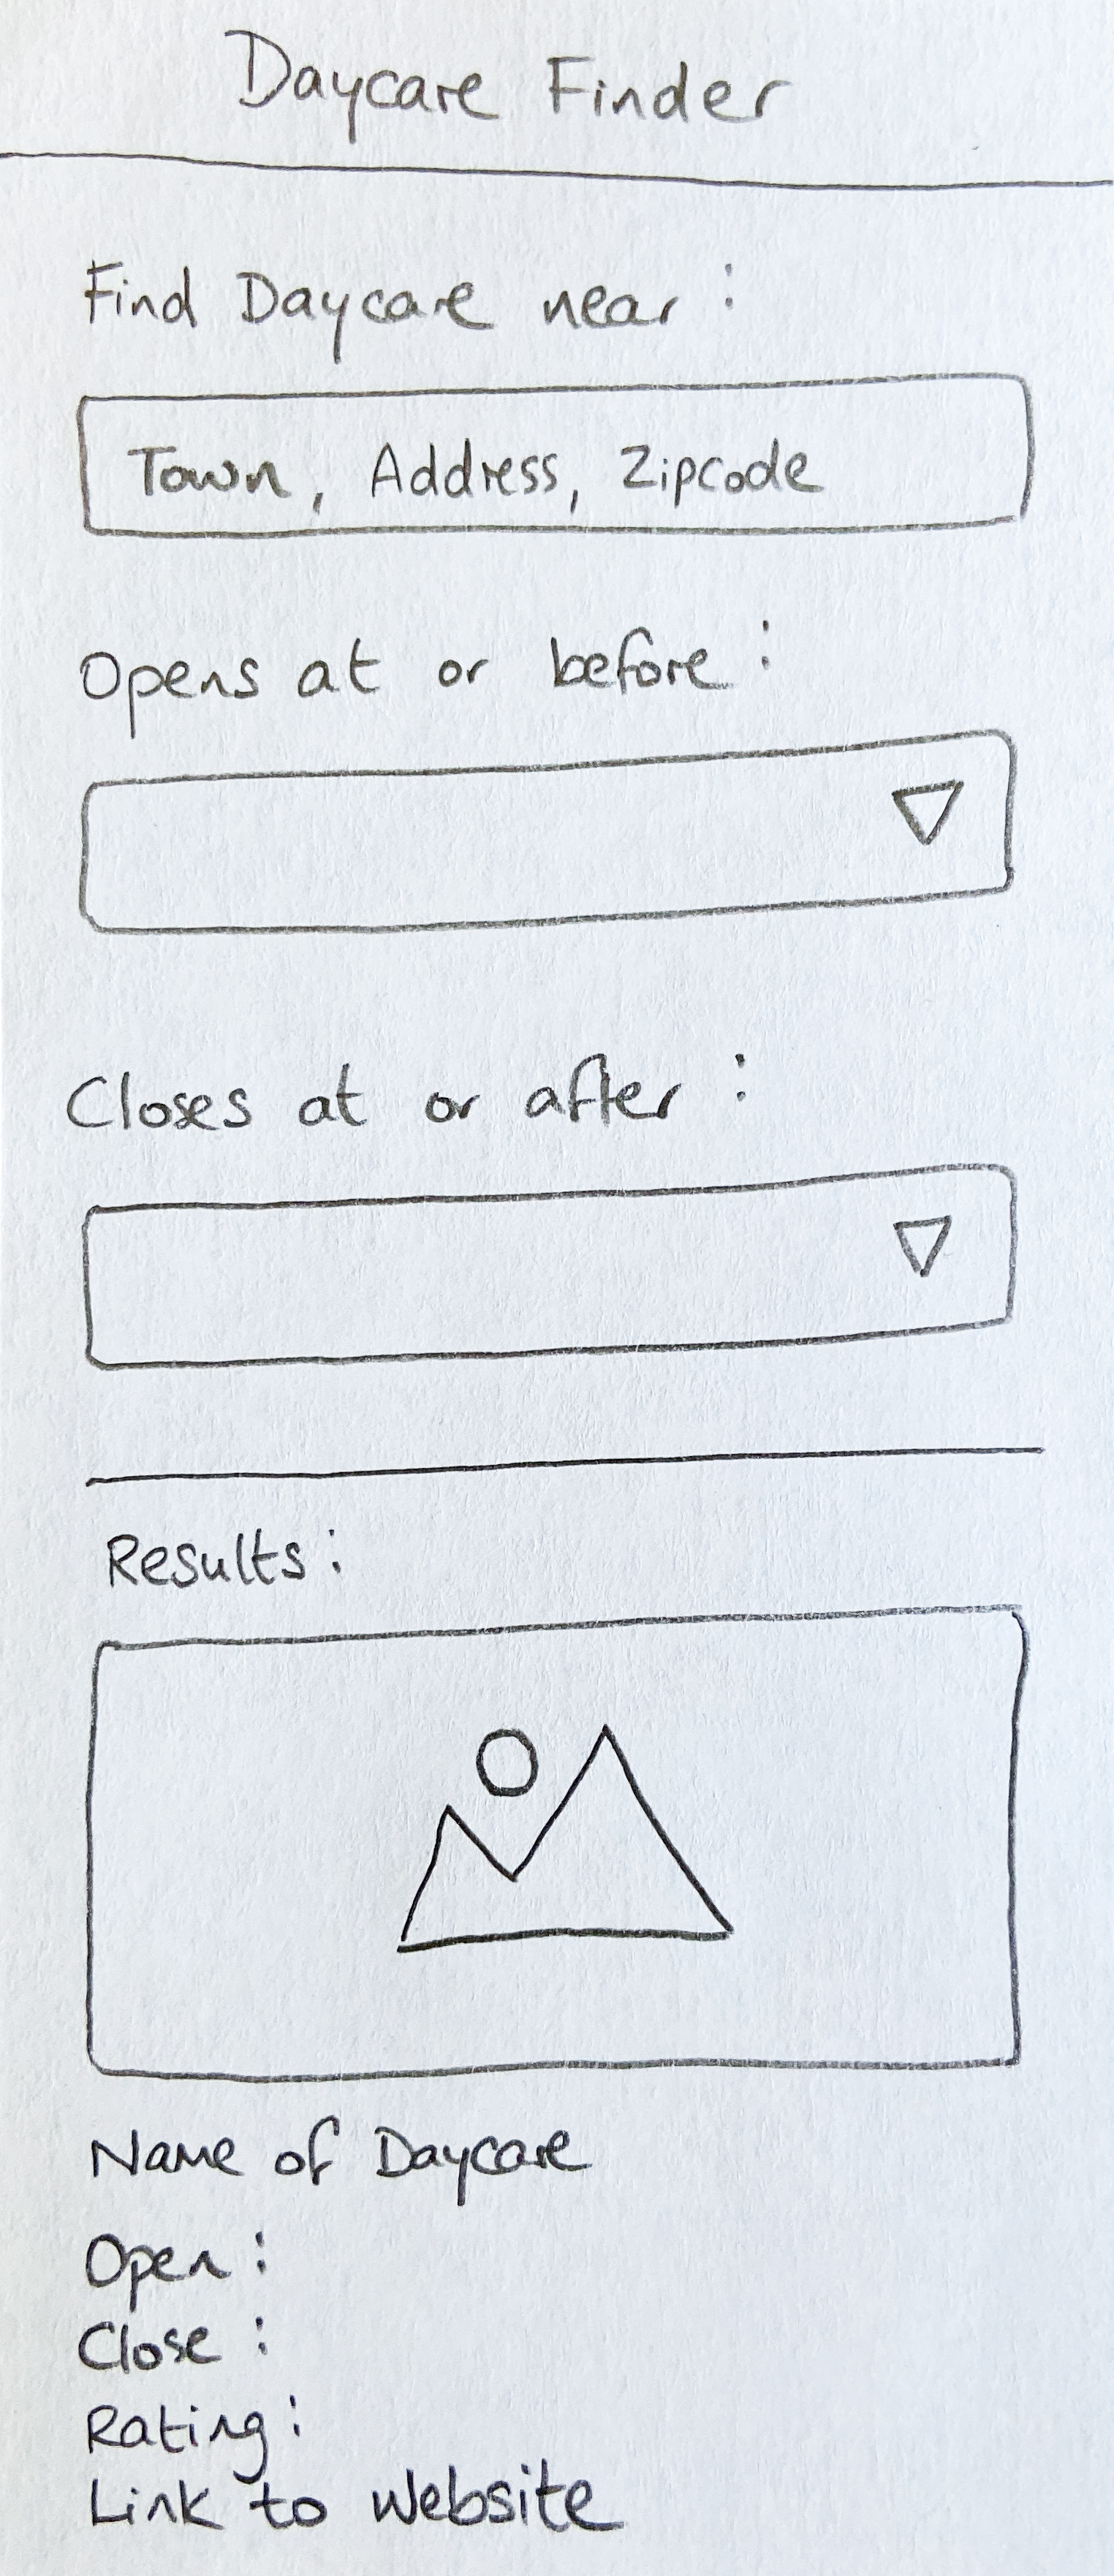 Daycare Finder
Find Daycare near :
Town, Address, Zipcode
Opens at or before :
Closes at or after :
Results :
Name of Daycare
Open :
Close :
Rating :
Link to Website